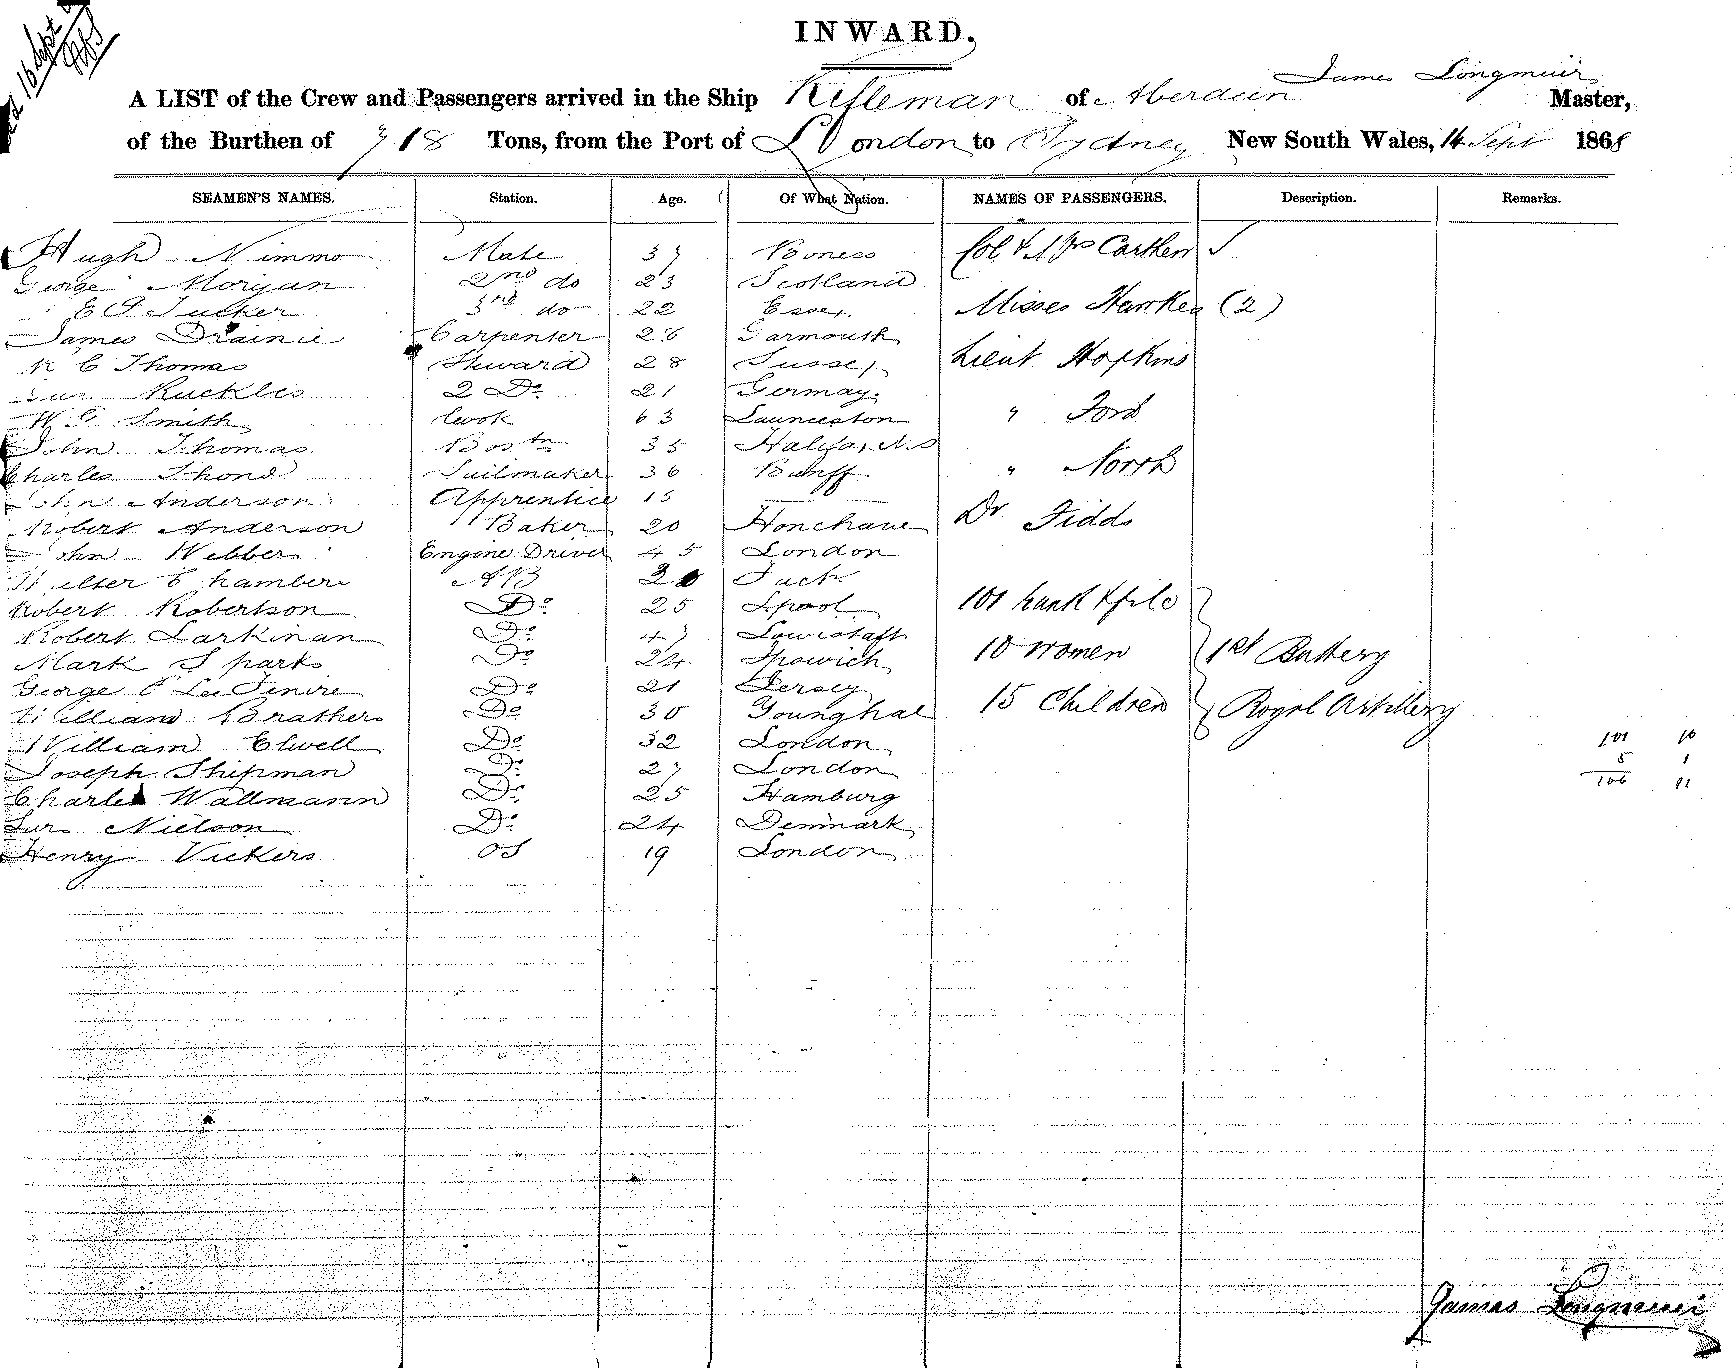 16 Sept
INWARD.
A LIST of the Crew and Passengers arrived in the Ship Rifleman of Aberdeen James Longmuir Master,
of the Burthen of 718 Tons, from the Port of London to Sydney New South Wales, 14 Sept 1868
SEAMEN'S NAMES. Station. Age. Of What Nation. NAMES OF PASSENGERS. Description. Remarks.
Hugh Nimmo Mate 37 Boness Col & Mrs
George Morgan 2nd do 23 Scotland
E Tucker 3rd do 22 Essex Misses (2)
James Carpenter 26 Garmouth
R C Thomas Steward 28 Sussex Lieut Hopkins
Ruckles 2 Do 21 Germay
W G Smith Cook 63 Launceston " Ford
John Thomas Bostn 35 Halifax N S
Charles Sailmaker 36 Banff " North
John Anderson Apprentice 15
Robert Anderson Baker 20 Dr
John Webber Engine Driver 45 London
Walter Chambers AB
Robert Robertson Do 25 Lpool 101 rank & file
Robert Larkinan Do 47 Lowistaft
Mark Sparks Do 24 Ipswich 10 women 1st Battery
George Do 21 Jersey
William Brathers Do 30 Younghal 15 Children Royal Artillery
William Elwell Do 32 London 101 10
Joseph Shipman Do 27 London 5 1
Charles Wallmann Do 25 Hamburg 106
Nielson Do 24 Denmark
Henry Vickers OS 19 London
James Longmuir